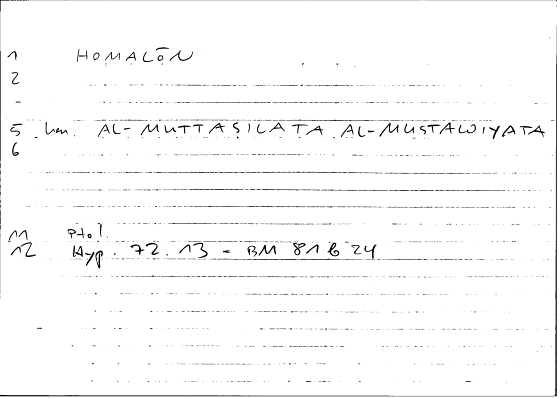 1 HOMALŌN
2
-
5 hon. AL-MUTTASILATA AL-MUSTAWIYATA
6
11 Ptol.
12 Hyp. 72.13 = BM 81 b 24